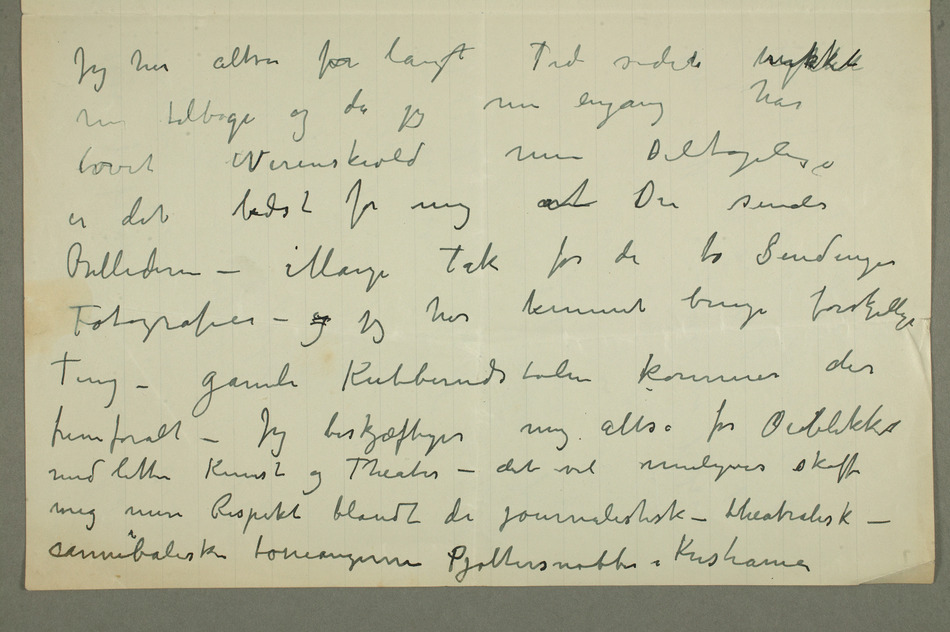 Jeg har altså for langt Tid siden trukket
mig tilbage og da jeg nu engang har
lovet Werenskiold min Deltagelse
er det bedst for mig at Du sender
Billederne – Mange Tak for de to Sendinger
Fotografier – og jeg har kunnet bruge forskjellige
Ting – gamle Kubberudstolen kommer der
fremforalt – Jeg beskjæftiger mig altså for Øieblikket
med lettere Kunst og Theater – det vil muligvis skaffe
mig mere Respekt blandt de journalistisk – theatralisk –
cannibalske Pjoltersnobber i Kristiania